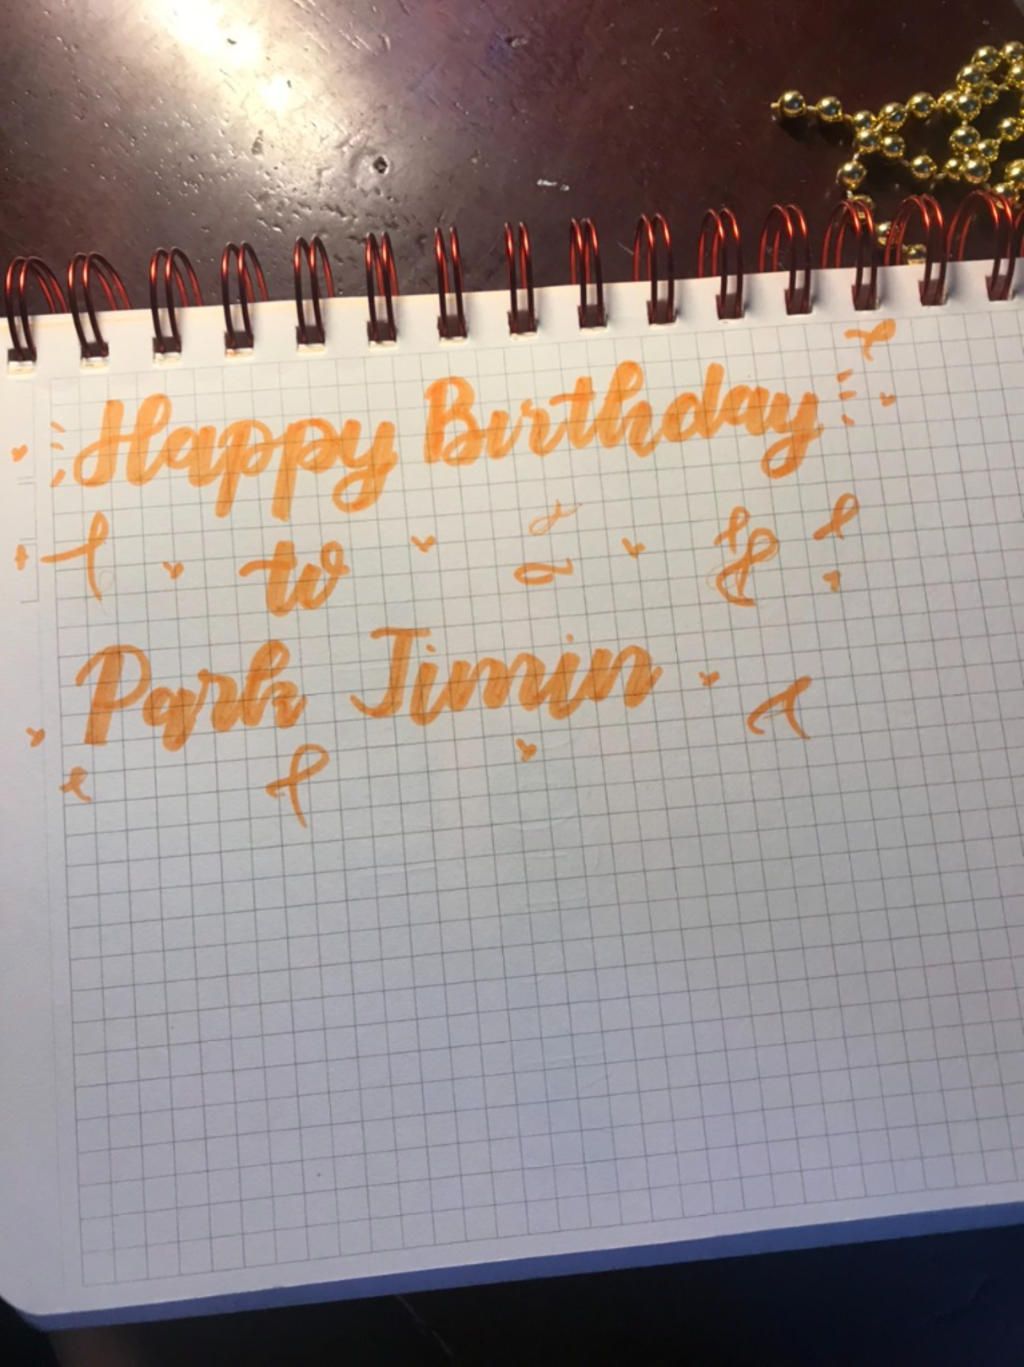 Happy Birthday
to
Park Jimin